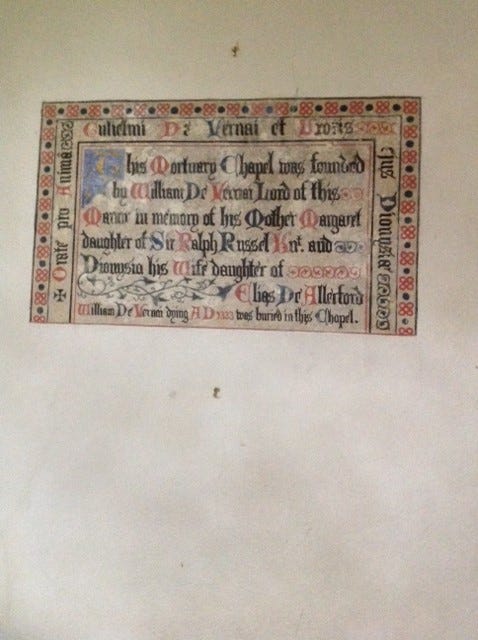 ✠ Orate pro Anima
Gulielmi De Vernai et Uxoris
Ejus Dionysiæ
This Mortuary Chapel was founded
by William De Vernai Lord of this
Manor in memory of his Mother Margaret
daughter of Sir Ralph Russel Knt. and
Dionysia his Wife daughter of
Elias De Allerford
William De Vernai dying A.D 1333 was buried in this Chapel.